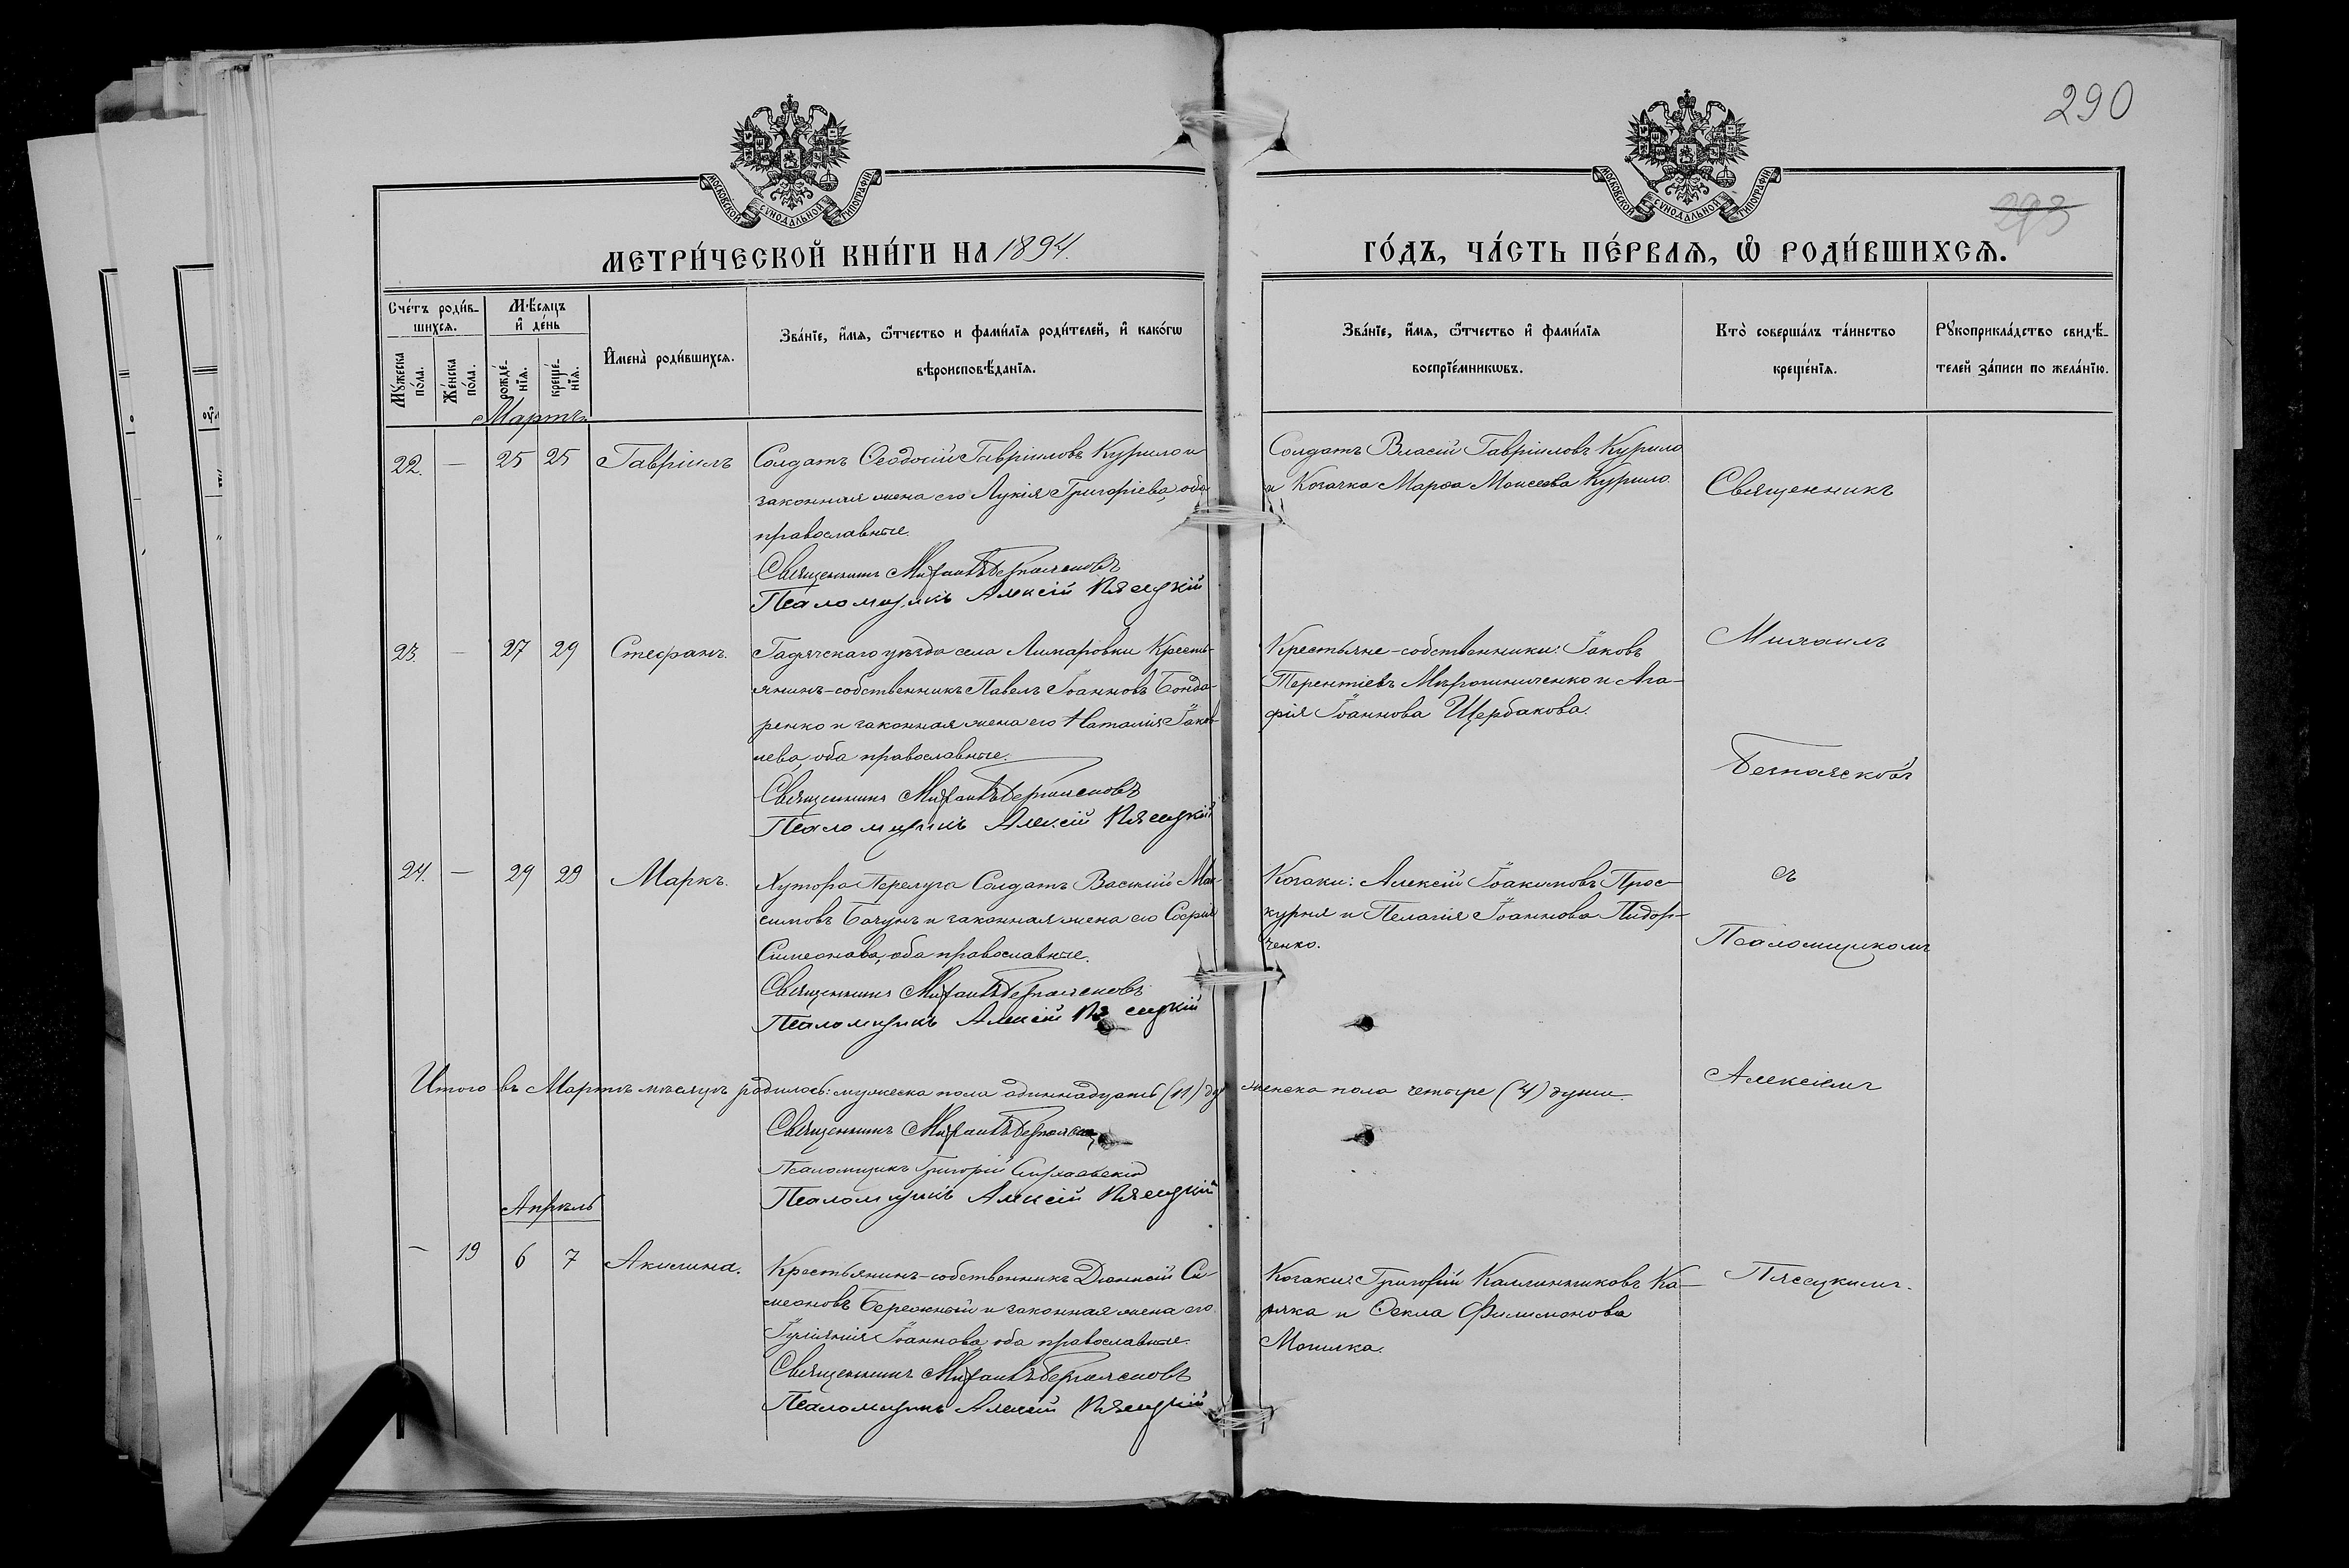 290
293
МОСКОВСКОЙ СУНОДАЛЬНОЙ ТИПОГРАФІИ
МОСКОВСКОЙ СУНОДАЛЬНОЙ ТИПОГРАФІИ
МЕТРИ́ЧЕСКОЙ КНИ́ГИ НА 1894.
ГО́ДЪ, ЧА́СТЬ ПЕ́РВАЯ, Ѽ РОДИ́ВШИХСЯ.
Сче́тъ роди́в-
шихся.
Мꙋжеска по́ла.
Же́нска по́ла.
Мѣ́сяцъ
и҆ де́нь
рожде́-нїя.
креще́-нїя.
И҆мена̀ роди́вшихся.
Зва́нїе, и҆́мя, ѻ҆́тчество и фами́лїя роди́телей, и҆ како́гѡ
вѣроисповѣ́данїя.
Зва́нїе, и҆́мя, ѻ҆́тчество и҆ фами́лїя
воспрїе́мникѡвъ.
Кто̀ соверша́лъ та́инство
креще́нїя.
Рꙋкоприкла́дство свидѣ́-
телей за́писи по жела́нїю.
Мартъ
22. — 25 25 Гавріилъ Солдатъ Ѳеодосій Гавріиловъ Курило и
законная жена его Лукія Григоріева, оба
православные.
Священникъ Михаилъ Бернасковъ
Псаломщикъ Алексій Пясецкій
Солдатъ Власій Гавріиловъ Курило
и Козачка Марѳа Моисеева Курило.
Священникъ
23. — 27 29 Стефанъ. Гадячскаго уѣзда села Лимаровки Кресть-
янинъ-собственникъ Павелъ Іоанновъ Бонда-
ренко и законная жена его Наталія Іаков-
лева, оба православные.
Священникъ Михаилъ
Псаломщикъ Алексій Пясецкій
Крестьяне-собственники: Іаковъ
Терентіевъ Мирошниченко и Ага-
фія Іоаннова Щербакова.
Михаилъ
24. — 29 29 Маркъ. Хутора Перелуга Солдатъ Василій Мак-
симовъ Бачунъ и законная жена его Софія
Симеонова, оба православные.
Священникъ Михаилъ
Псаломщикъ Алексій Пясецкій
Козаки: Алексій Іоакимовъ Прос-
курня и Пелагія Іоаннова Пидор-
ченко.
съ
Псаломщикомъ
Итого въ Мартѣ мѣсяцѣ родилось: мужеска пола одиннадцать (11) женска пола четыре (4) души.
Священникъ Михаилъ
Псаломщикъ Григорій
Псаломщикъ Алексій Пясецкій
Алексіемъ
Апрѣль
— 19 6 7 Акилина. Крестьянинъ-собственникъ Діонисій Си-
меоновъ Бережной и законная жена его
Іуліанія Іоаннова, оба православные.
Священникъ Михаилъ
Псаломщикъ Алексій Пясецкій
Козаки: Григорій Каллинниковъ Ка-
ряка и Ѳекла Филимонова
Могилка.
Пясецкимъ.